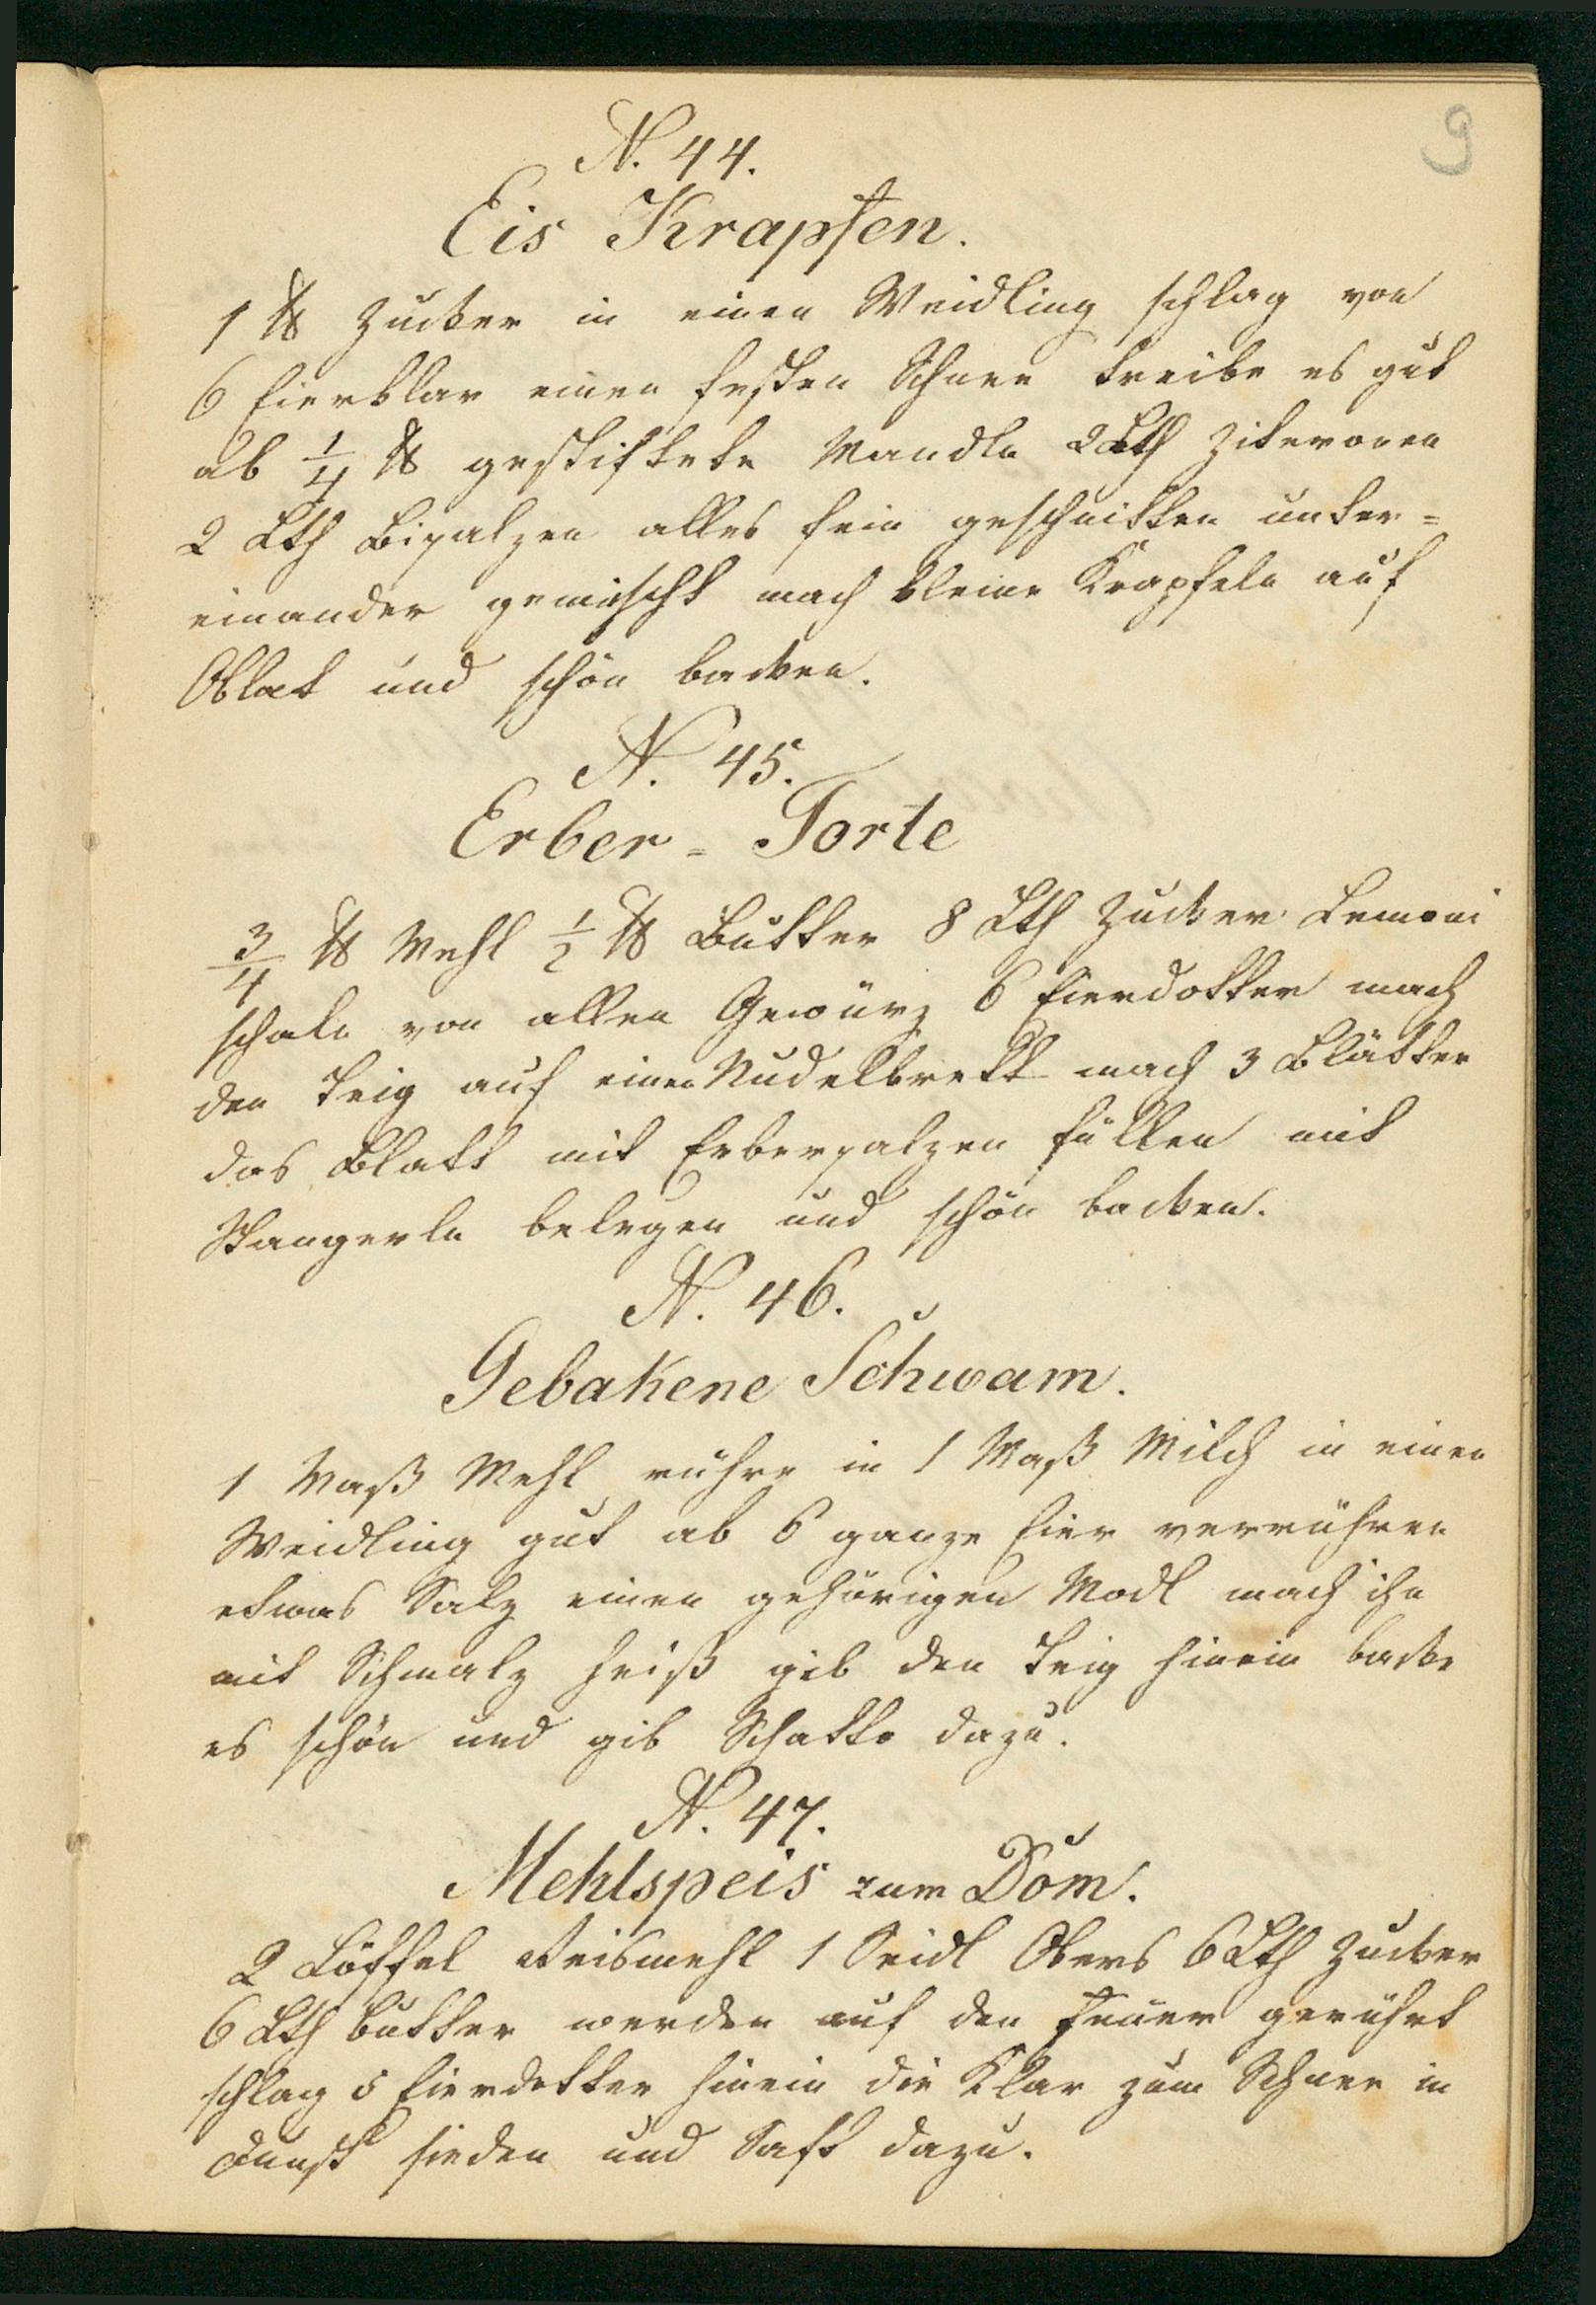 9
N. 44.
Eis Krapfen.
1 ℔ Zucker in einen Weidling schlag von
6 Eierklar einen festen Schnee treibe es gut
ab 1/4 ℔ gestiftete Mandln 2 Lth Ziteronen
2 Lth Bisalzen alles fein geschnitten unter=
einander gemischt mach kleine Krapfeln auf
Oblat und schön backen.
N. 45.
Erber= Torte
3/4 ℔ Mehl 1/2 ℔ Butter 8 Lth Zucker Lemoni
schale von allen Gewürz 6 Eierdotter mach
den Teig auf einen Nudelbrett mach 3 Blätter
das Blatt mit Erbersalzen füllen mit
Stangerln belegen und schön backen.
N. 46.
Gebakene Schwam.
1 Maß Mehl rühre in 1 Maß Milch in einen
Weidling gut ab 6 ganze Eier verrühren
etwas Salz einen gehörigen Modl mach ihn
mit Schmalz heiß gib den Teig hinein backe
es schön und gib Schatto dazu.
N. 47.
Mehlspeis zum Dom.
2 Löffel Reismehl 1 Seidl Obers 6 Lth Zucker
6 Lth Butter werden auf den Feuer gerührt
schlag 5 Eierdotter hinein die Klar zum Schnee in
Dunst sieden und Saft dazu.